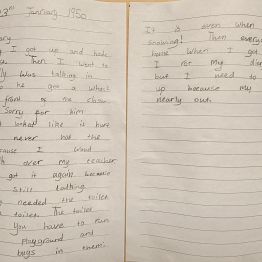 3rd January 1950
ary
I got up and had
Then I went to
ly was talking in
he got a whack
front of the class
Sorry for him
what like it hurt
never had the
cause I woud
over my teacher
got it again because
still talking
needed the toilet
toilet. The toilet
You have to run
playground and
bugs in them.
It is even when
snowing! Then every
home when I got
I for My diary
but I need to
up because my
nearly out.